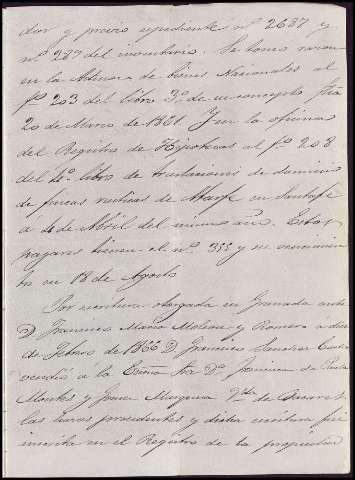 dor y previo espediente nº 2637 y
nº 237 del inventario. Se tomó razon
en la Adm.on de bienes Nacionales al
fº 203 del libro 3º de su concepto fha
20 de Marzo de 1861. Y en la oficina
del Registro de Hipotecas al fº 208
del libro de traslaciones de dominio
de fincas rusticas de en Santafé
á 4 de Abril del mismo año. Estos
pagares tienen el nº 355 y su vencimien
to en 18 de Agosto
Por escritura otorgada en Granada ante
D Francisco Maria Molina y Romero á diez
de Febrero de 1866 D Francisco Sanchez
vendió á la Exma Sra Dª Francisca de Paula
Montes y Vda de
las hazas precedentes y dicha escritura fué
inscrita en el Registro de la propiedad